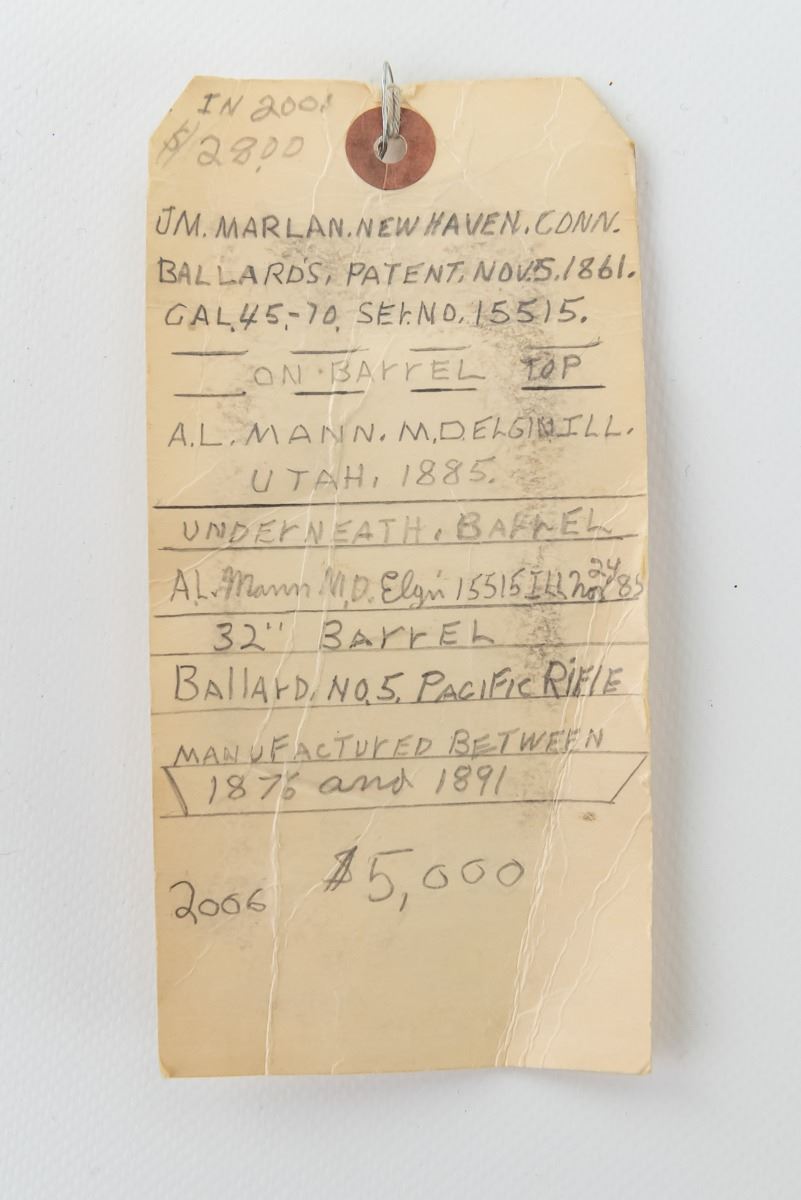 IN 2001
$2800
JM. MARLAN. NEW HAVEN. CONN.
BALLARD'S, PATENT. NOV. 5. 1861.
CAL. 45-70. SEr. NO. 15515.
ON BArrEL TOP
A.L. MANN. M.D. ELGIN ILL.
UTAH. 1885.
UNDErNEATH. BArrEL
A.L. Mann M.D. Elgin 15515 ILL Nov 24 85
32" BArrEL
BallarD. NO. 5. PACIFIC RIFlE
MANUFACTUrED BETWEEN
1876 and 1891
$5,000
2006